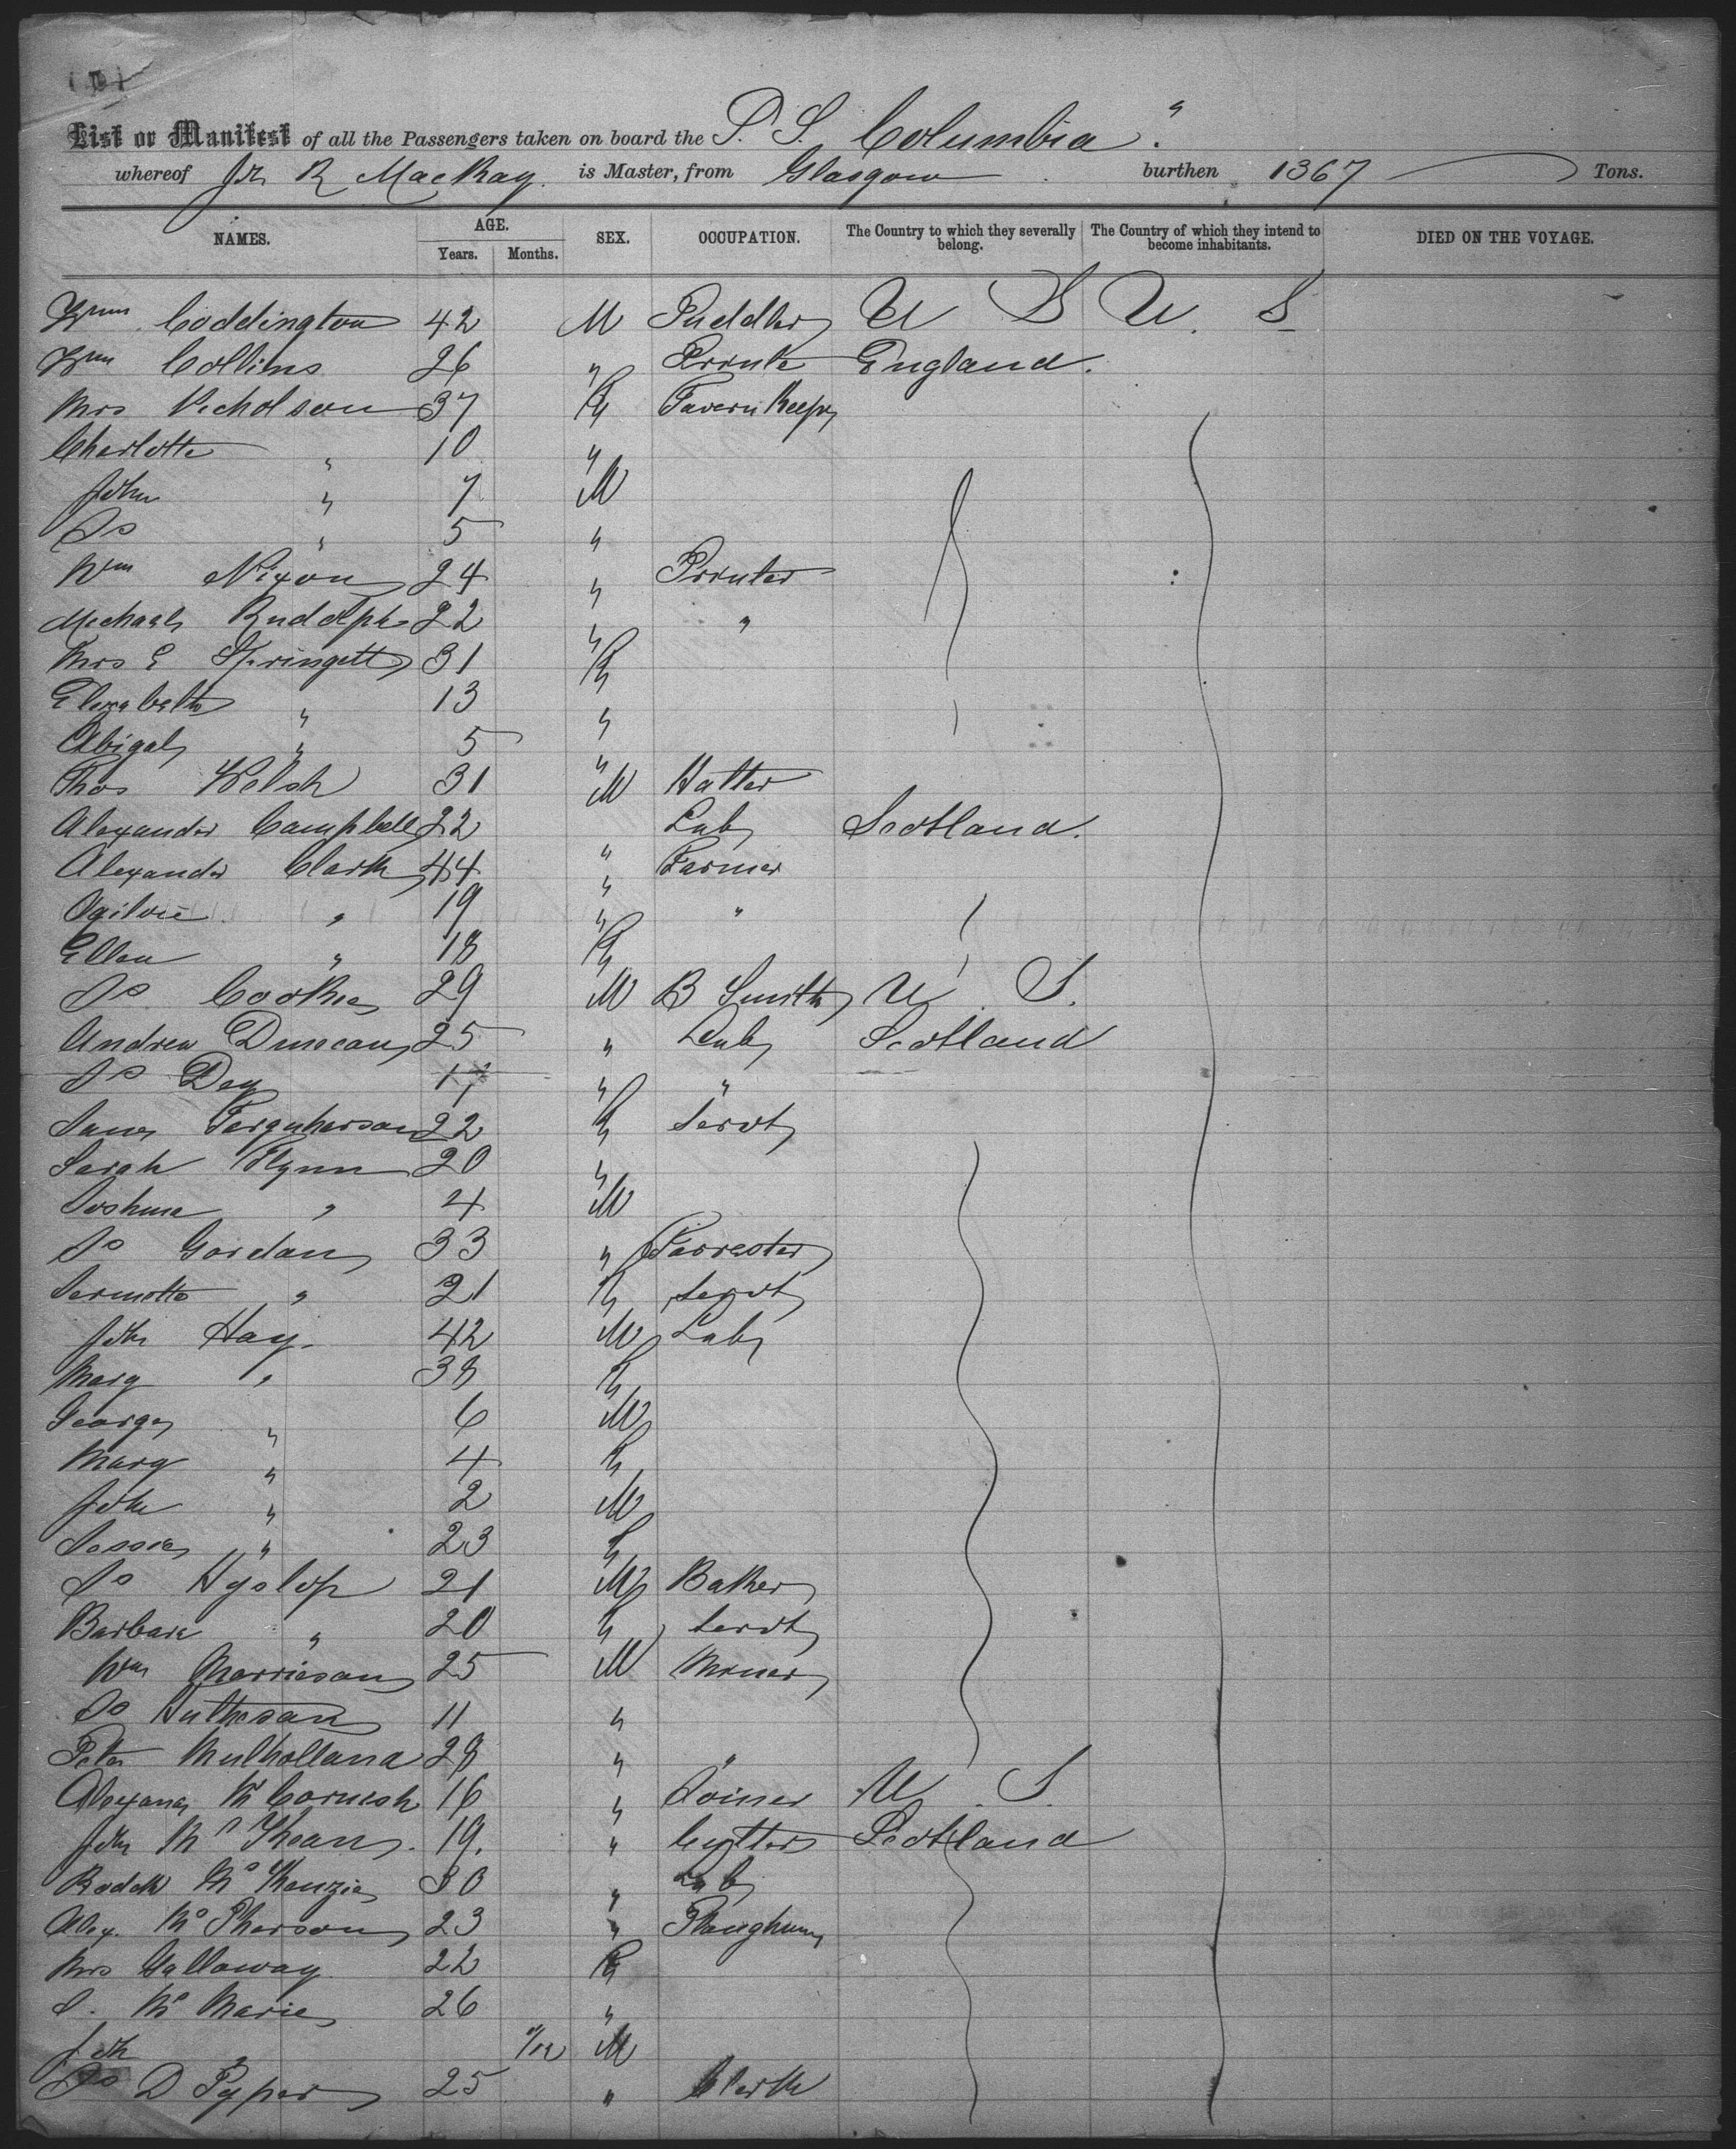 List or Manifest of all the Passengers taken on board the S. S. Columbia "
whereof Jn R MacKay is Master, from Glasgow burthen 1367 Tons.
NAMES. AGE. SEX. OCCUPATION. The Country to which they severally belong. The Country of which they intend to become inhabitants. DIED ON THE VOYAGE.
Years. Months.
Wm Coddington 42 M Puddler U S U. S
Wm Collins 26 " England.
Mrs Nicholson 37 F Tavern Keepr
Charlotte " 10 "
John " 7 M
Js " 5 "
Wm Nixon 24 " Printer
Michael Rudolph 22 " "
Mrs E Springett 31 F
Elizabeth " 13 "
Abigal " 5 "
Thos Welsh 31 M Hatter
Alexander Campbell 22 Lab Scotland.
Alexander Clark 44 " Farmer
Ogilvie " 19 " "
Ellen " 18 F
Js 29 M B Smith U. S.
Andrew Duncan 25 " Lab Scotland
Js Day " "
Farquharson 22 F Servt
Sarah Flynn 20 "
Joshua " 4 M
Js Gordan 33 " Forrester
" 21 F Servt
John Hay. 42 M Lab
Mary " 38 F
George " 6 M
Mary " 4 F
John " 2 M
Jessie " 23 F
Js Hyslop 21 M Baker
Barbara " 20 F Servt
Wm Morrison 25 M Miner
Js 11 "
Peter Mulholland 28 " "
16 " Joiner U. S.
John McKean. 19. " Cutter Scotland
Rodck McKenzie 30 " Lab
Alex. McPherson 23 " Ploughman
Mrs Galloway 22 F
26 "
John " M
Js D Pyper 25 " Clerk